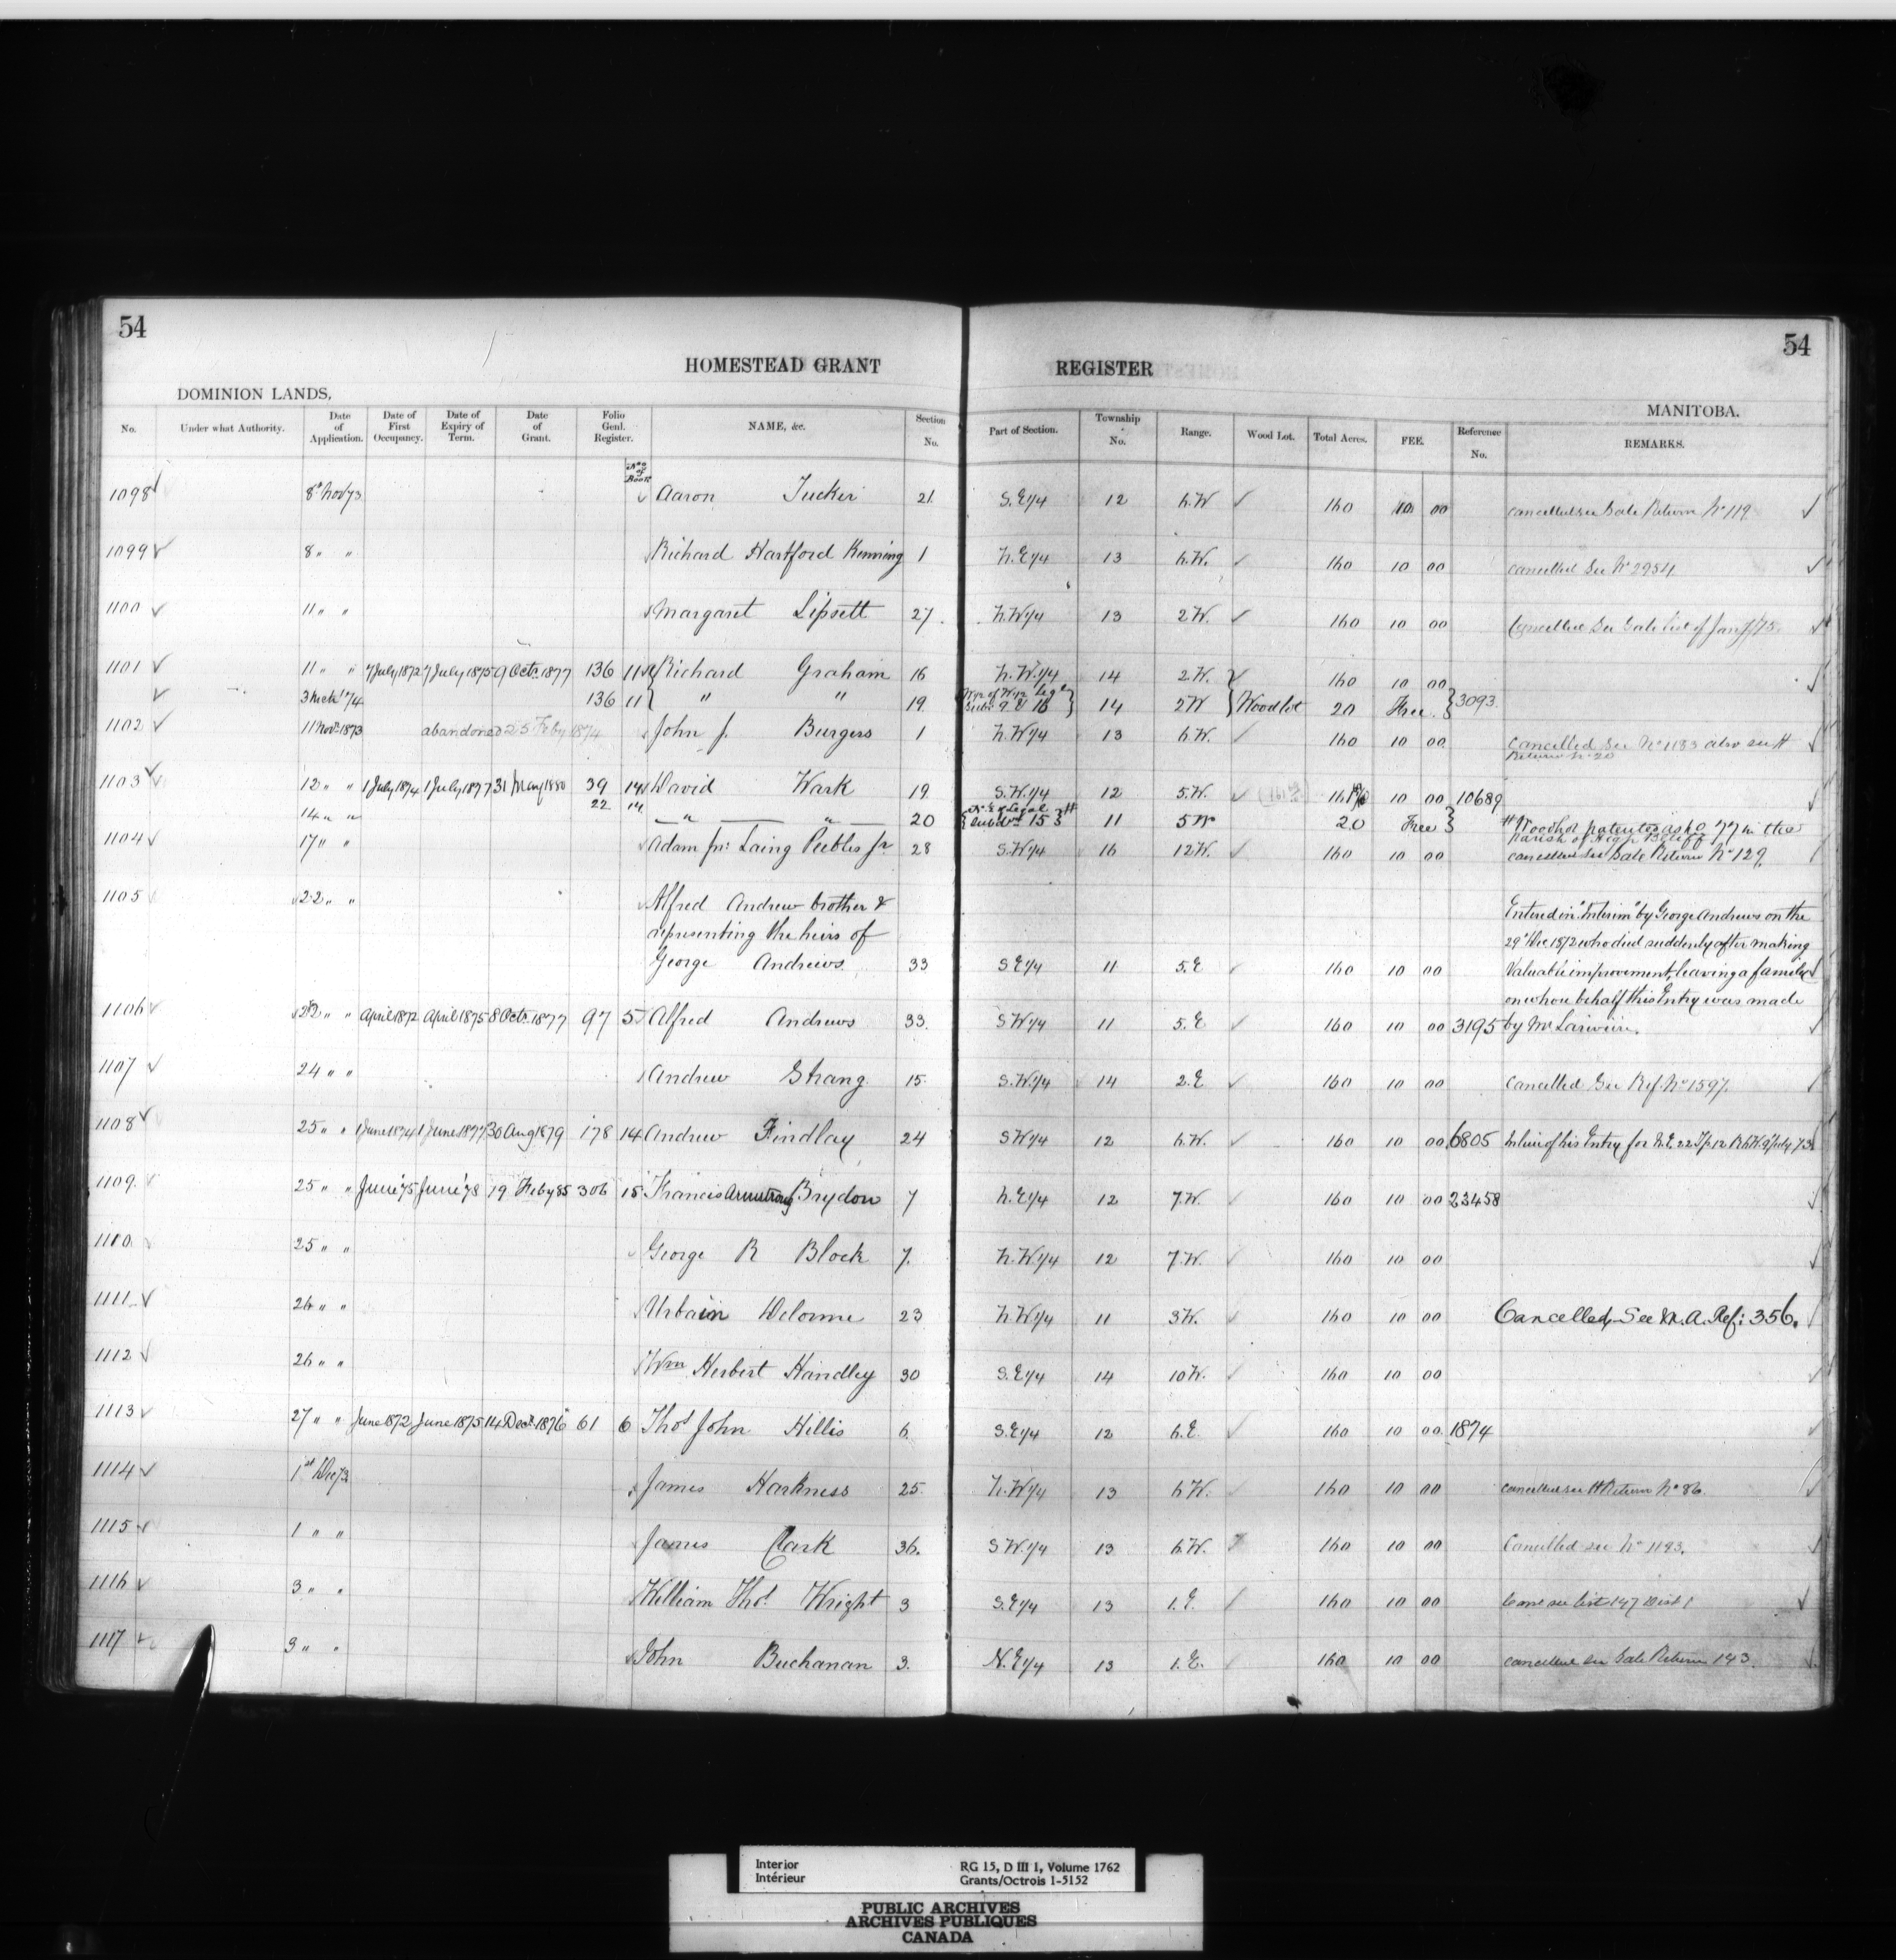 54
54
HOMESTEAD GRANT REGISTER
DOMINION LANDS,
MANITOBA.
No. Under what Authority. Date of Application. Date of First Occupancy. Date of Expiry of Term. Date of Grant. Folio Genl. Register. NAME, &c. Section No. Part of Section. Township No. Range. Wood Lot. Total Acres. FEE. Reference No. REMARKS.
Nos of Book
1098 8th Nov 73 Aaron Tucker 21. S.E1/4 12 6.W 160 10 00 cancelled see Sale Return No 119
1099 8 " " Richard Hartford Kinning 1 N.E1/4 13 6.W. 160 10 00 cancelled See No 2954
1100 11 " " Margaret Lipsett 27. N.W1/4 13 2.W. 160 10 00 Cancelled See Sale list of Jany /75.
1101 11 " " 7 July 1872 7 July 1875 9 Octr. 1877 136 11 Richard Graham 16 N.W.1/4 14 2.W. 160 10 00
3 Mch '74 136 11 " " 19 Legl Subn 9 & 16 14 2W Woodlot 20 Free. 3093
1102 11 Nov. 1873 abandoned 25 Feby 1874 John J. Burgess 1 N.W1/4 13 6.W. 160 10 00 Cancelled See No 1183 also see H
Return No 20
1103 12 " " 1 July 1874 1 July 1877 31 May 1880 39 14 David Wark 19 S.W.1/4 12 5.W. 10 00 10689
14 " " 22 14 " " 20 Legal Subdvn 15 # 11 5W 20 Free # Woodlot patented as Lo 77 in the
Parish of High Bluff
1104 17 " " Adam Laing Peebles Jr. 28 S.W1/4 16 12W. 160 10 00 cancelled See Sale Return No 129.
1105 22 " " Alfred Andrew brother &
representing the heirs of
George Andrews 33 S E1/4 11 5.E 160 10 00
Entered in "Interim" by George Andrews on the
29th Dec 1872 who died suddenly after making
Valuable improvement, leaving a family
on whose behalf this Entry was made
by Mr Lariviere.
1106 22 " " April 1872 April 1875 8 Octr. 1877 97 5 Alfred Andrews 33. S W1/4 11 5.E 160 10 00 3195
1107 24 " " Andrew Strang 15. S.W.1/4 14 2.E 160 10 00 Cancelled See Ref. No 1597.
1108 25 " " 1 June 1874 1 June 1877 30 Aug 1879 178 14 Andrew Findlay 24 S W1/4 12 6.W. 160 10 00 6805 In lieu of his Entry for N.E. 22 Tp 12 R 6 W. 9 July 73.
1109. 25 " " June '75 June '78 19 Feby 85 306 15 Francis Armstrong Brydon 7 N.E1/4 12 7.W. 160 10 00 23458
1110. 25 " " George R Block 7. N.W1/4 12 7.W. 160 10 00
1111 26 " " Urbain Delorme 23 N.W1/4 11 3W. 160 10 00 Cancelled, See M.A. Ref: 356.
1112 26 " " Wm Herbert Handley 30 S.E1/4 14 10W. 160 10 00
1113 27 " " June 1872 June 1875 14 Decr. 1876 61 6 Thos John Hillis 6 S.E1/4 12 6.E. 160 10 00 1874
1114 1st Dec 73 James Harkness 25. N.W1/4 13 6W. 160 10 00 cancelled see H Return No 86.
1115 1 " " James Clark 36. S W.1/4 13 6.W. 160 10 00 Cancelled see No 1193.
1116 3 " " William Thos. Wright 3 S.E1/4 13 1.E. 160 10 00 Canc see list 147 Dist 1
1117 3 " " John Buchanan 3. N.E1/4 13 1.E. 160 10 00 cancelled see Sale Return 143.
Interior RG 15, D III 1, Volume 1762
Intérieur Grants/Octrois 1-5152
PUBLIC ARCHIVES
ARCHIVES PUBLIQUES
CANADA